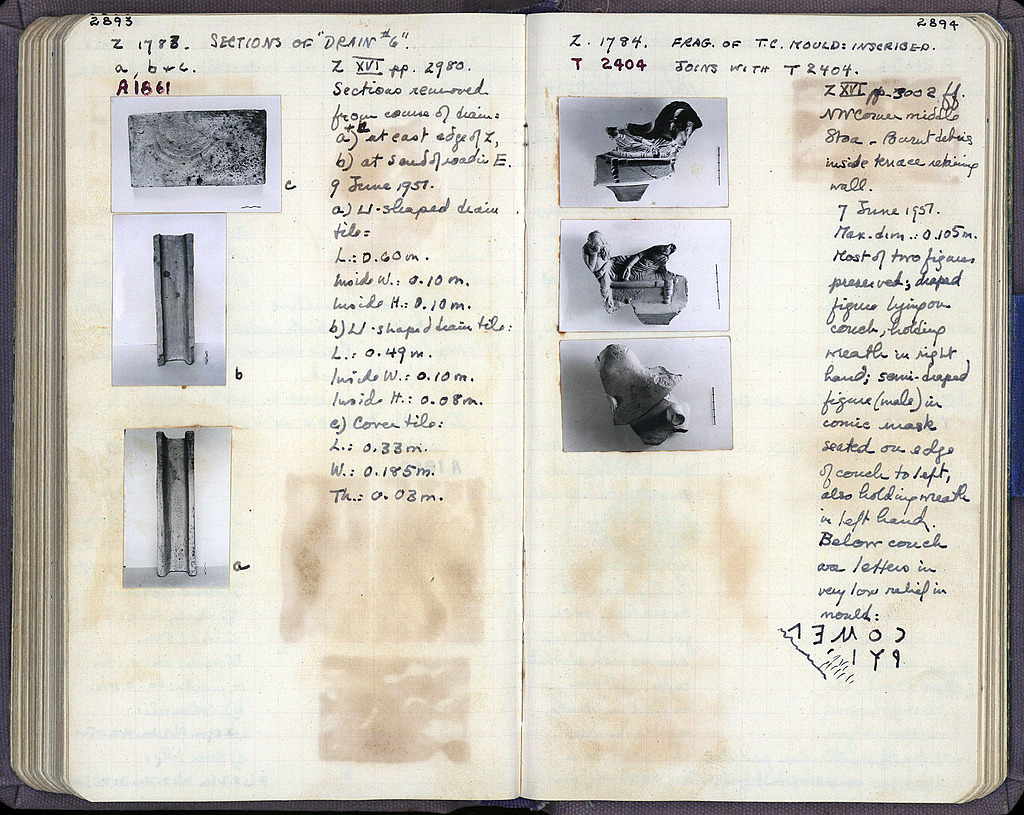 2893
Z 1783. SECTIONS OF "DRAIN #6".
a, b + c.
A 1861
Z XVI pp. 2980.
Sections removed
from course of drain:
a) at east edge of Z,
b) at S end of road in E.
9 June 1951.
a) U-shaped drain
tile:
L.: 0.60 m.
Inside W.: 0.10 m.
Inside H.: 0.10 m.
b) U-shaped drain tile:
L.: 0.49 m.
Inside W.: 0.10 m.
Inside H.: 0.08 m.
c) Cover tile:
L.: 0.33 m.
W.: 0.185 m.
Th.: 0.03 m.
c
b
a
2894
Z. 1784. FRAG. OF T.C. MOULD: INSCRIBED.
T 2404 JOINS WITH T 2404.
Z XVI pp. 3002 ff.
NW Corner middle
Stoa - Burnt debris
inside terrace retaining
wall.
7 June 1951.
Max. dim.: 0.105 m.
Most of two figures
preserved; draped
figure lying on
couch, holding
wreath in right
hand; semi-draped
figure (male) in
comic mask
seated on edge
of couch to left,
also holding wreath
in left hand.
Below couch
are letters in
very low relief in
mould: